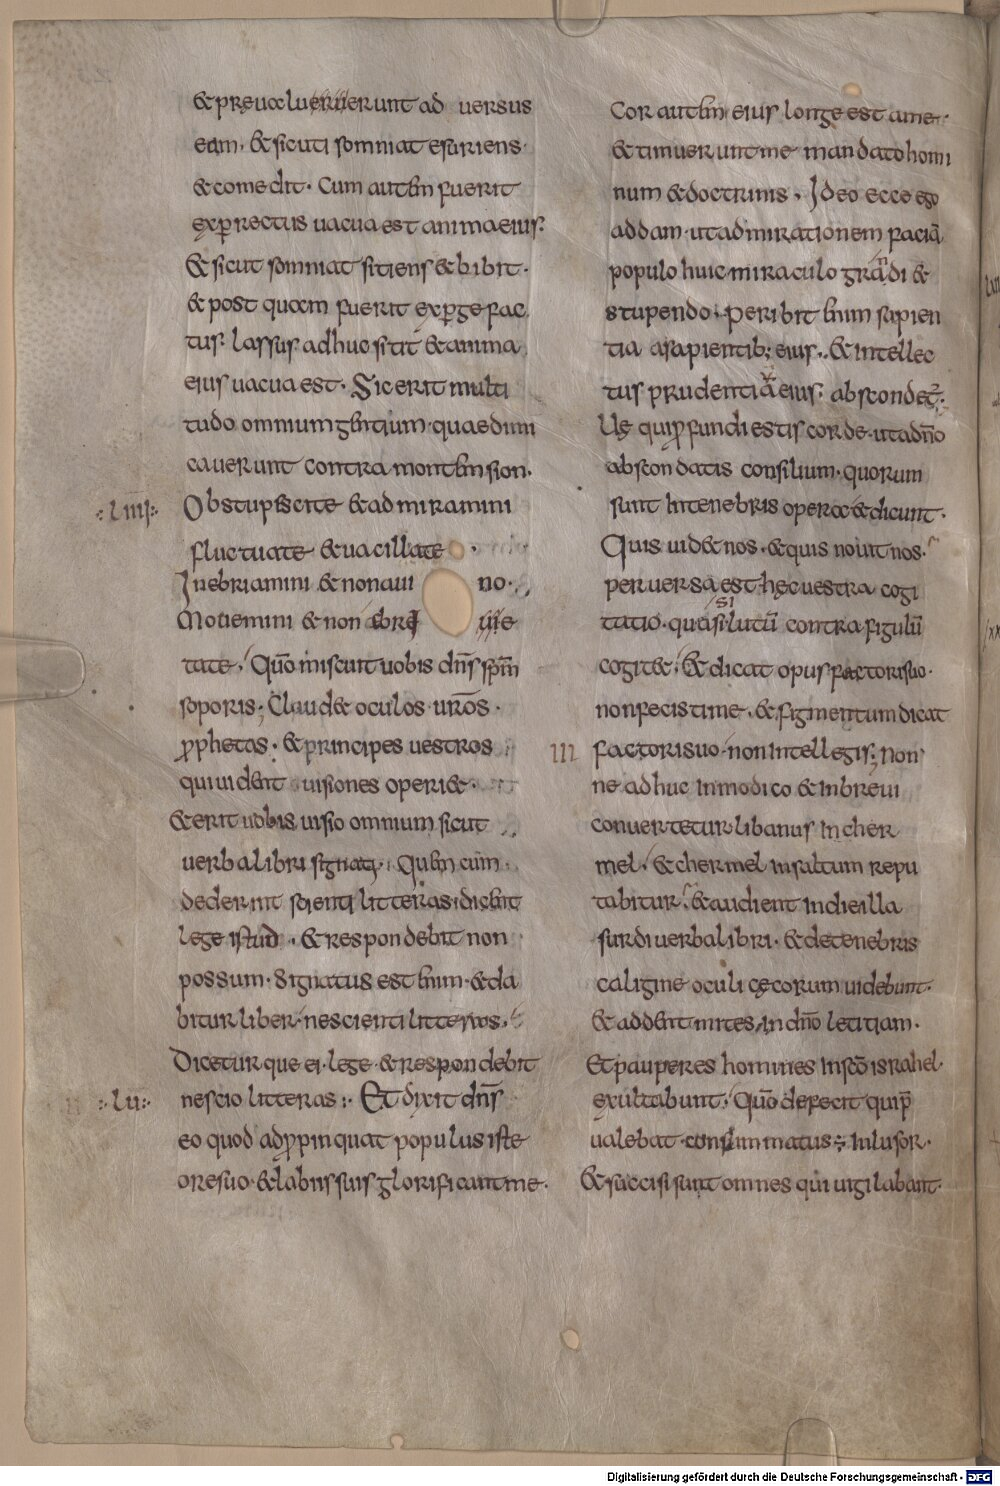 & pręualueruerunt ad uersus
eam. & sicuti somniat esuriens.
& comedit. Cum autem fuerit
exp̱rectus uacua est anima eius.
& sicut somniat sitiens & bibit.
& post quam fuerit exp̱gefac
tus. lassus adhuc sitit & anima
eius uacua est. Sic erit multi
tudo omnium gentium quae dimi
cauerunt contra montem sion.
:·LIIII·: Obstupescite & admiramini
fluctuate & uacillate
Inebriamini & non a uino.
Mouemini & non ebrie
tate. Quō miscuit uobis dn̄s sp̄m
soporis. Claud& oculos uros.
ꝓphetas. & principes uestros
qui uident uisiones operi&.
& erit uobis uisio omnium sicut
uerba libri signati. Quem cum
dederint scienti litteras. dicent
lege istud. & respondebit non
possum. Signatus est enim. & da
bitur liber nescienti litteras.
Dicetur que ei. lege. & respondebit
:·LU·: nescio litteras. Et dixit dn̄s
eo quod adꝓpinquat populus iste
ore suo. & labiis suis glorificant me.
Cor autem eius longe est a me.
& timuerunt me mandato homi
num & doctrinis. Ideo ecce ego
addam ut admirationem faciā
populo huic miraculo grandi &
stupendo. Peribit enim sapien
tia a sapientib; eius. & intellec
tus prudentiū eius abscondet̄.
Uę qui ꝓfundi estis corde. ut a dn̄o
abscondatis consilium. quorum
sunt in tenebris opera & dicunt.
Quis uid& nos. & quis nouit nos.
peruersa est hęc uestra cogi
tatio. quasi si lutū contra figulū
cogit&. & dicat opus factori suo.
non fecisti me. & figmentum dicat
III factori suo. non intellegis. Non
ne adhuc in modico & in breui
conuertetur libanus in cher
mel. & chermel in saltum repu
tabitur. & audient in die illa
surdi uerba libri. & de tenebris
caligine oculi cęcorum uidebunt.
& addent mites, in dn̄o letitiam.
Et pauperes homines in sc̄o israhel
exultabunt. Quō defecit qui p̄
ualebat consummatus; inlusor.
& succisi sunt omnes qui uigilabant.
Digitalisierung gefördert durch die Deutsche Forschungsgemeinschaft - DFG